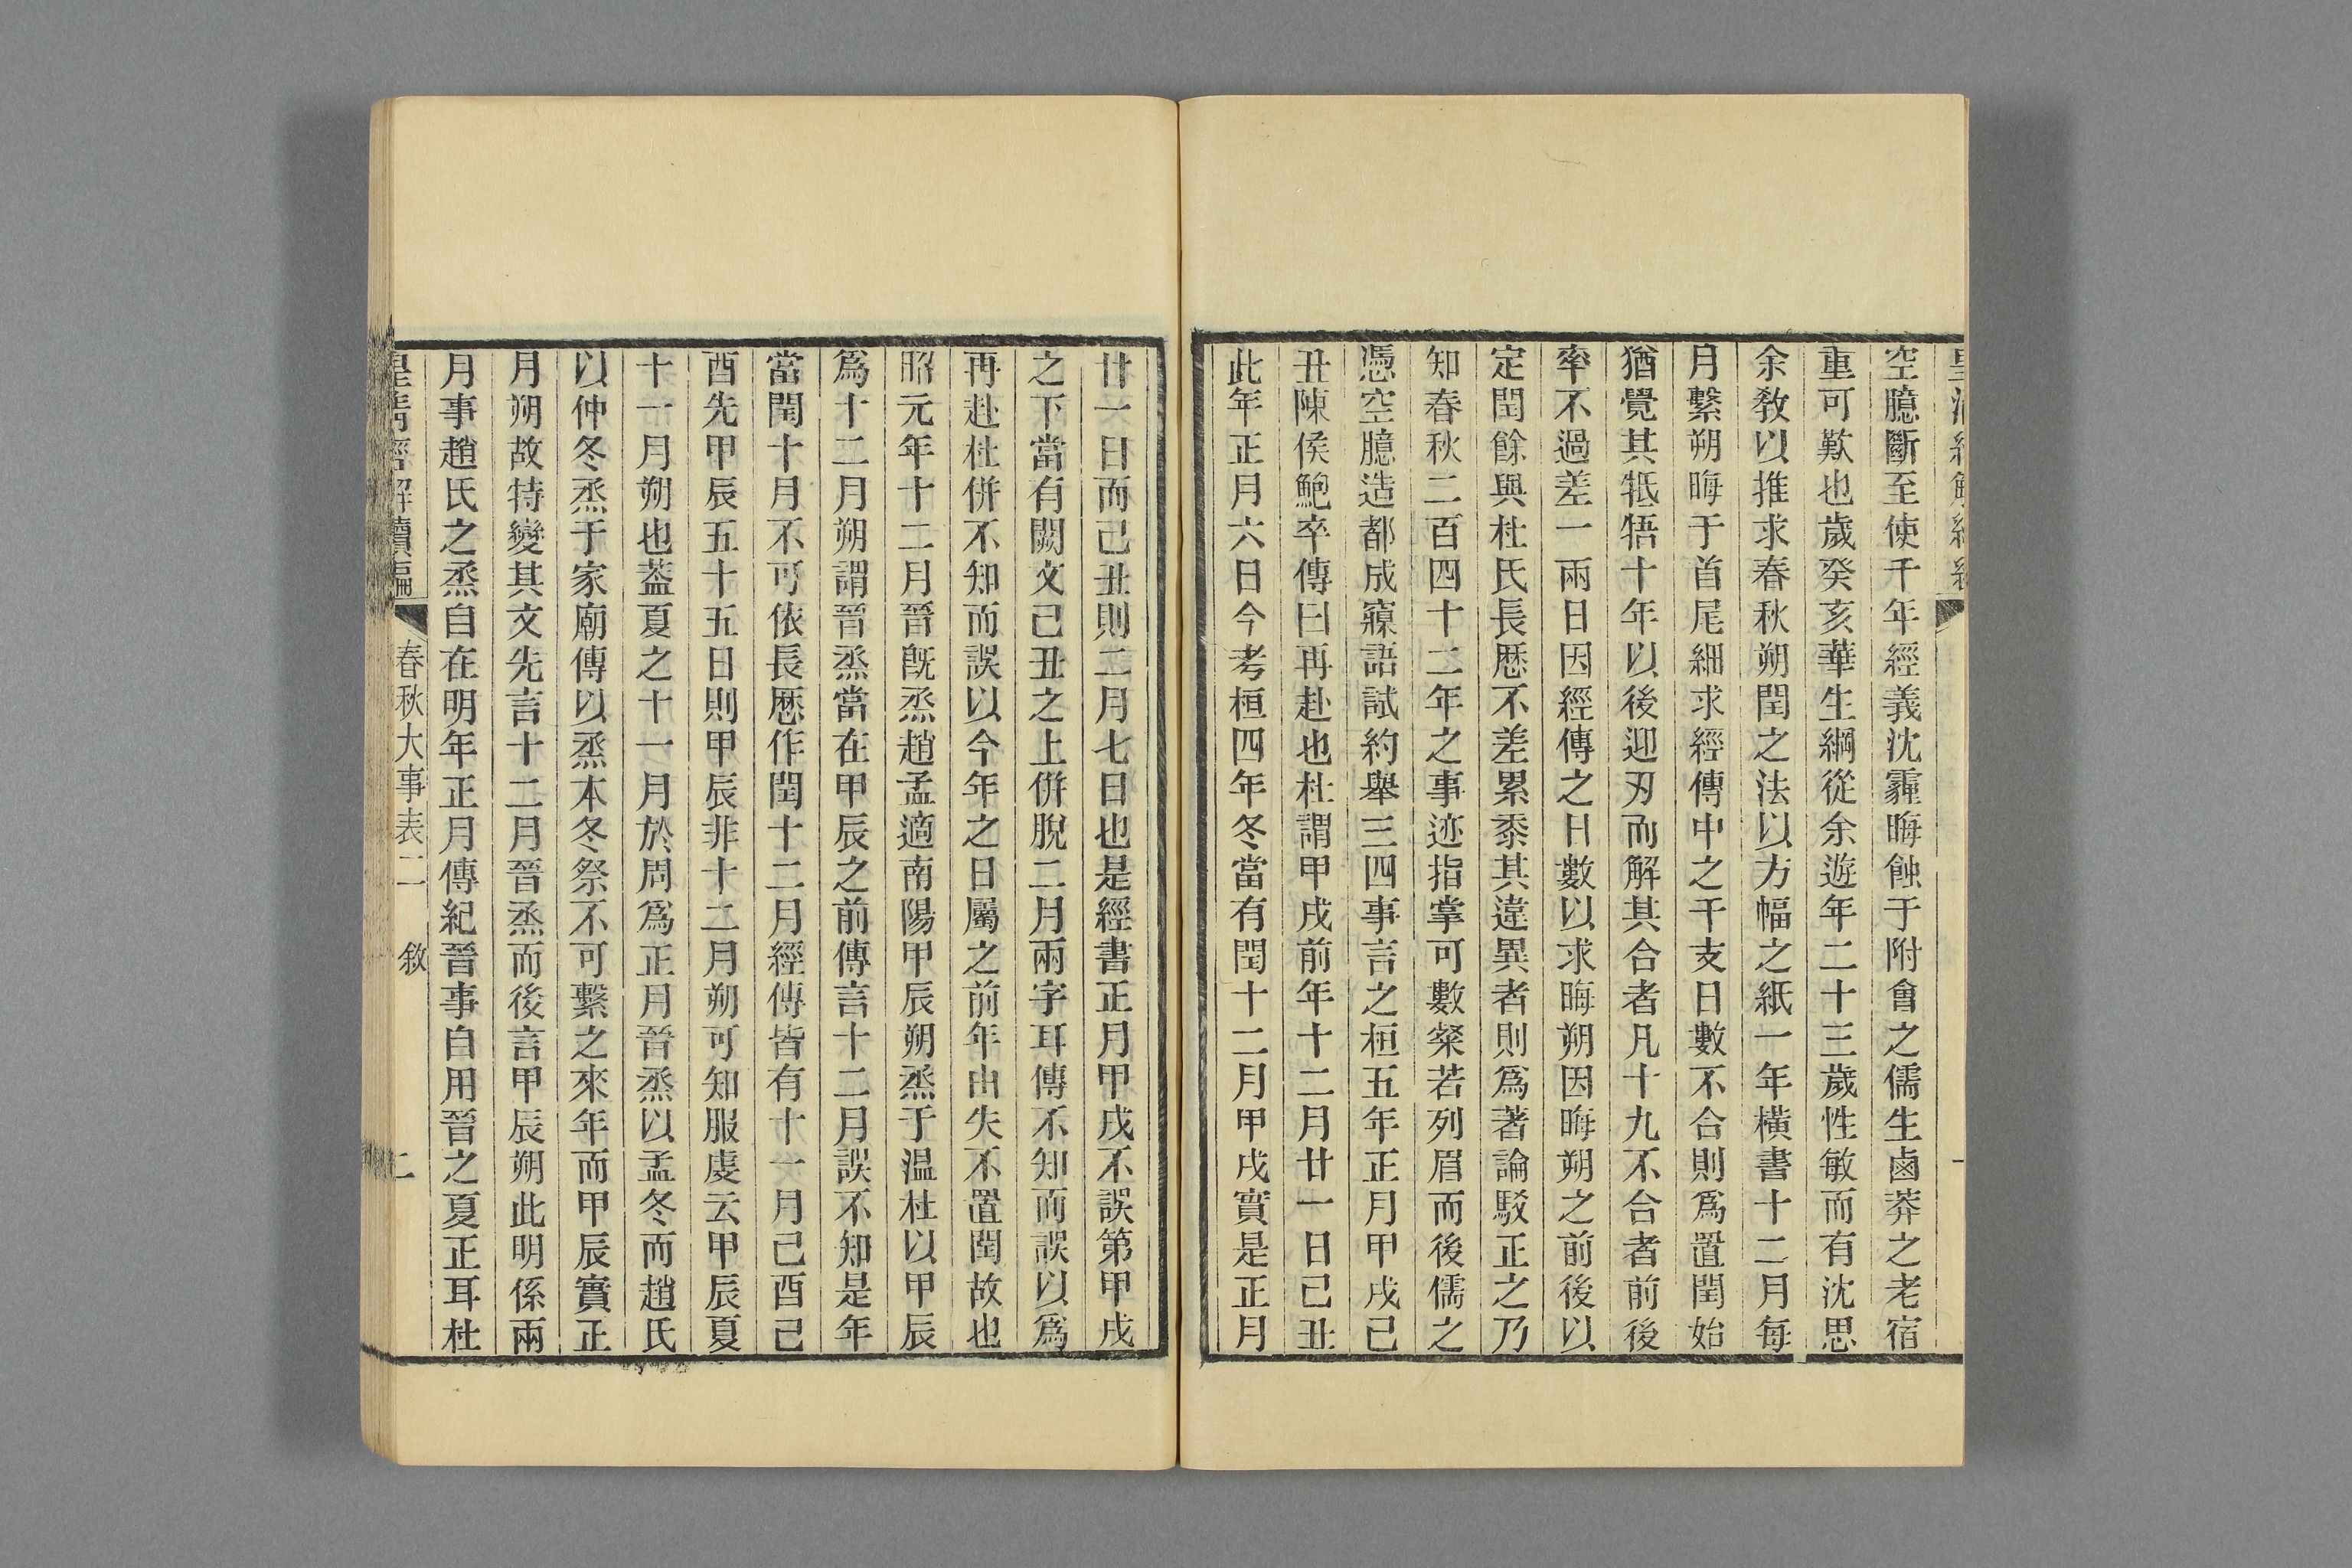 空臆斷至使千年經義沈霾晦蝕于附會之儒生鹵莽之老宿
重可歎也歲癸亥華生綱從余遊年二十三歲性敏而有沈思
余敎以推求春秋朔閏之法以方幅之紙一年橫書十二月每
月繫朔晦于首尾細求經傳中之干支日數不合則爲置閏始
猶覺其牴牾十年以後迎刃而解其合者凡十九不合者前後
率不過差一兩日因經傳之日數以求晦朔因晦朔之前後以
定閏餘與杜氏長歷不差累黍其違異者則爲著論駁正之乃
知春秋二百四十二年之事迹指掌可數粲若列眉而後儒之
憑空臆造都成寱語試約舉三四事言之桓五年正月甲戌己
丑陳侯鮑卒傳曰再赴也杜謂甲戌前年十二月廿一日己丑
此年正月六日今考桓四年冬當有閏十二月甲戌實是正月
廿一日而己丑則二月七日也是經書正月甲戌不誤第甲戌
之下當有闕文己丑之上併脫二月兩字耳傳不知而誤以爲
再赴杜併不知而誤以今年之日屬之前年由失不置閏故也
昭元年十二月晉旣烝趙孟適南陽甲辰朔烝于温杜以甲辰
爲十二月朔謂晉烝當在甲辰之前傳言十二月誤不知是年
當閏十月不可依長歷作閏十二月經傳皆有十一月己酉己
酉先甲辰五十五日則甲辰非十二月朔可知服虔云甲辰夏
十一月朔也蓋夏之十一月於周爲正月晉烝以孟冬而趙氏
以仲冬烝于家廟傳以烝本冬祭不可繫之來年而甲辰實正
月朔故特變其文先言十二月晉烝而後言甲辰朔此明係兩
月事趙氏之烝自在明年正月傳紀晉事自用晉之夏正耳杜
皇清經解續編 春秋大事表二 敘 二